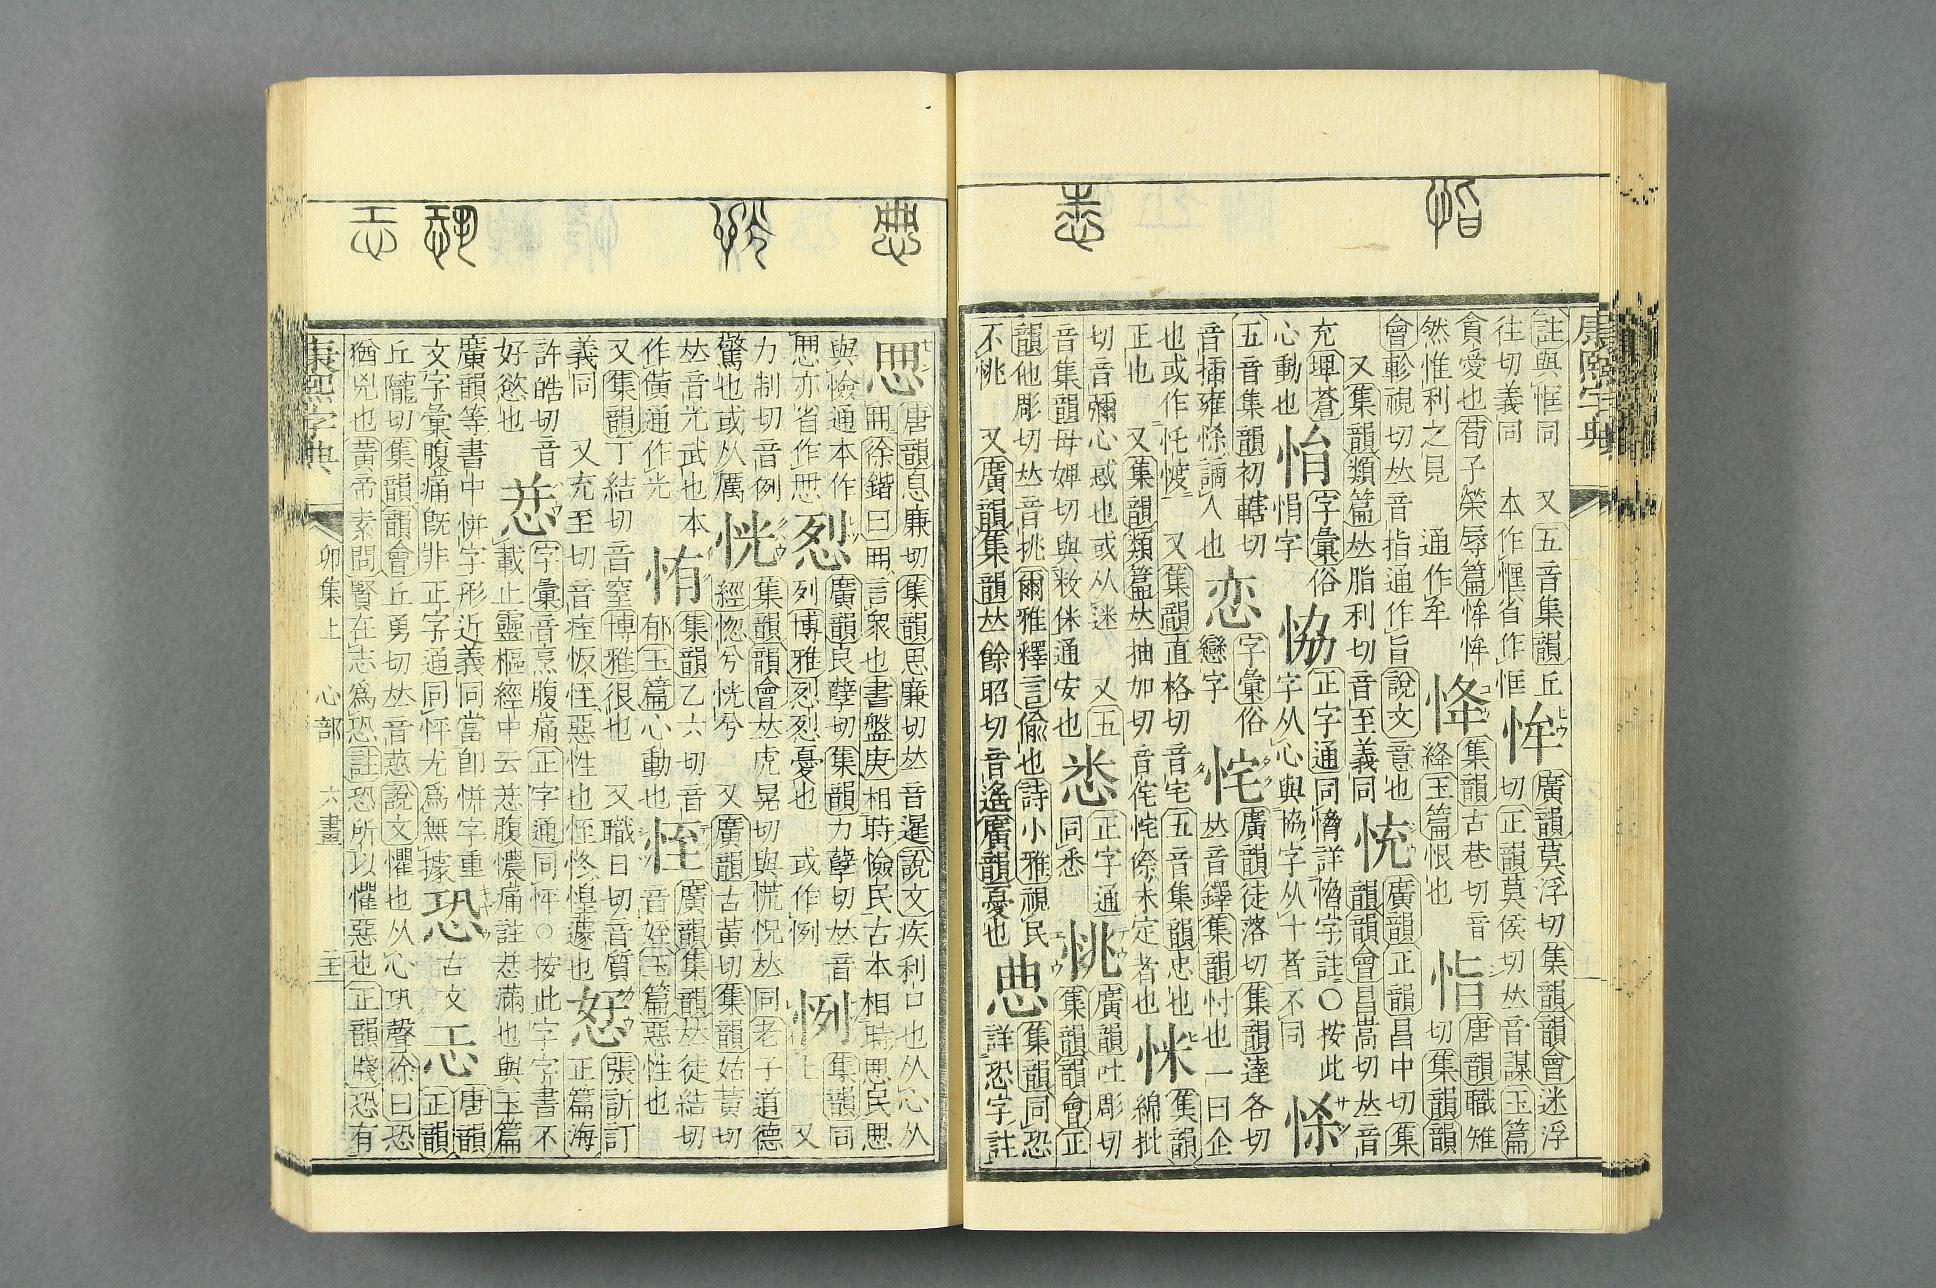 康熙字典
註與恇同　又五音集韻丘
往切義同　本作㤮省作恇
恈
廣韻莫浮切集韻韻會迷浮
切正韻莫侯切𠀤音謀玉篇
貪愛也荀子榮辱篇恈恈
然惟利之見　通作牟
集韻古巷切音
絳玉篇恨也
恉
唐韻職雉
切集韻韻
會軫視切𠀤音指通作旨說文意也
又集韻類篇𠀤脂利切音至義同
㤝
廣韻正韻昌中切集
韻韻會昌嵩切𠀤音
充埤蒼
心動也
字彙俗
悁字
恊
正字通同愶詳愶字註○按此
字从心與協字从十者不同
五音集韻初轄切
音插雍譎人也
恋
字彙俗
戀字
㤞
廣韻徒落切集韻達各切
𠀤音鐸集韻忖也一曰企
也或作　又集韻直格切音宅五音集韻忠也
正也　又集韻類篇𠀤抽加切音侘㤞傺未定者也
㤇
集韻
綿批
切音彌心惑也或从迷　又五
音集韻母婢切與敉侎通安也
正字通
同悉
恌
廣韻吐彫切
集韻韻會正
韻他彫切𠀤音挑爾雅釋言偷也詩小雅視民
不恌　又廣韻集韻𠀤餘昭切音遙廣韻憂也
集韻同恐
詳恐字註
唐韻息廉切集韻思廉切𠀤音暹說文疾利口也从心从
冊徐鍇曰冊言衆也書盤庚相時憸民古本相時民
與憸通本作
亦省作思
㤠
廣韻良孽切集韻力孽切𠀤音
列博雅㤠㤠憂也　或作㤡
㤡
集韻同
上　又
力制切音例
驚也或从厲
恍
集韻韻會𠀤虎晃切與慌怳𠀤同老子道德
經惚兮恍兮　又廣韻古黃切集韻姑黃切
𠀤音光武也本
作僙通作光
㤢
集韻乙六切音
郁玉篇心動也
恎
廣韻集韻𠀤徒結切
音姪玉篇惡性也
又集韻丁結切音窒博雅很也　又職日切音質
義同　又充至切音痓恎惡性也恎惶遽也
張訢訂
正篇海
許皓切音
好慾也
字彙音烹腹痛正字通同怦○按此字字書不
載止靈樞經中云腹憹痛註滿也與玉篇
廣韻等書中恲字形近義同當卽恲字重
文字彙腹痛旣非正字通同怦尤爲無據
恐
古文
唐韻
正韻
丘隴切集韻韻會丘勇切𠀤音說文懼也从心巩聲徐曰恐
猶兇也黃帝素問腎在志爲恐註恐所以懼惡也正韻牋恐有
康熙字典　卯集上　心部　六畫